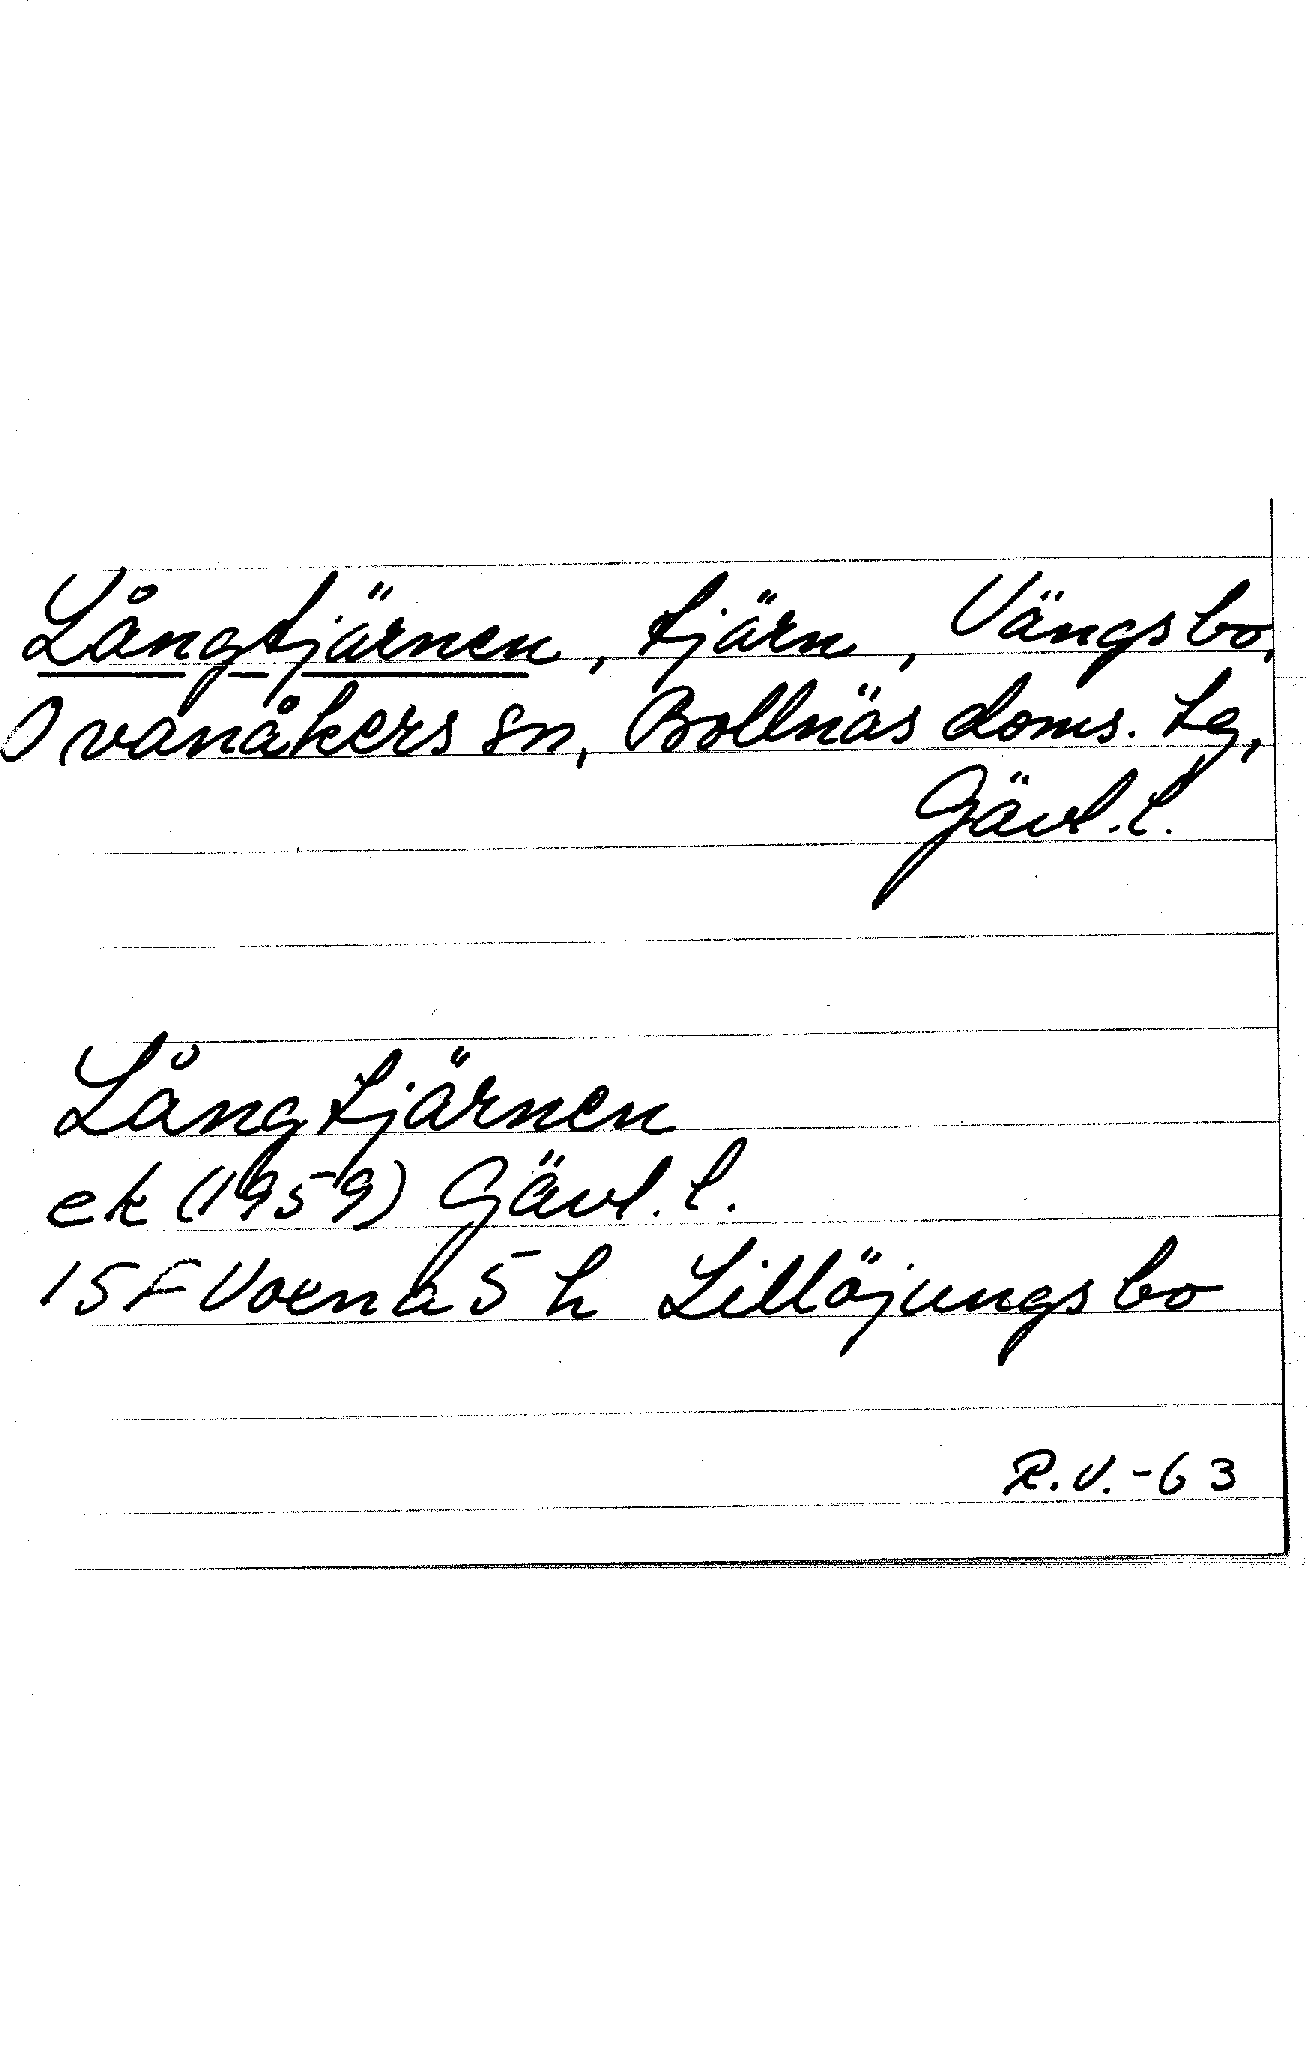 Långtjärnen, tjärn, Vängsbo,
Ovanåkers sn, Bollnäs doms. tg,
Gävl.l.
Långtjärnen
ek (1959) Gävl.l.
15F Voxna 5 h Lillöjungsbo
R.V.-63